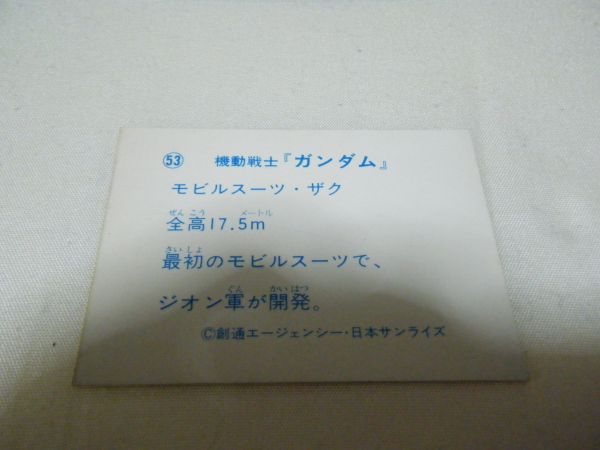 ㊼ 機動戦士『ガンダム』
モビルスーツ・ザク
ぜんこう メートル
全高17.5m
さいしょ
最初のモビルスーツで、
ぐん かいはつ
ジオン軍が開発。
©創通エージェンシー・日本サンライズ